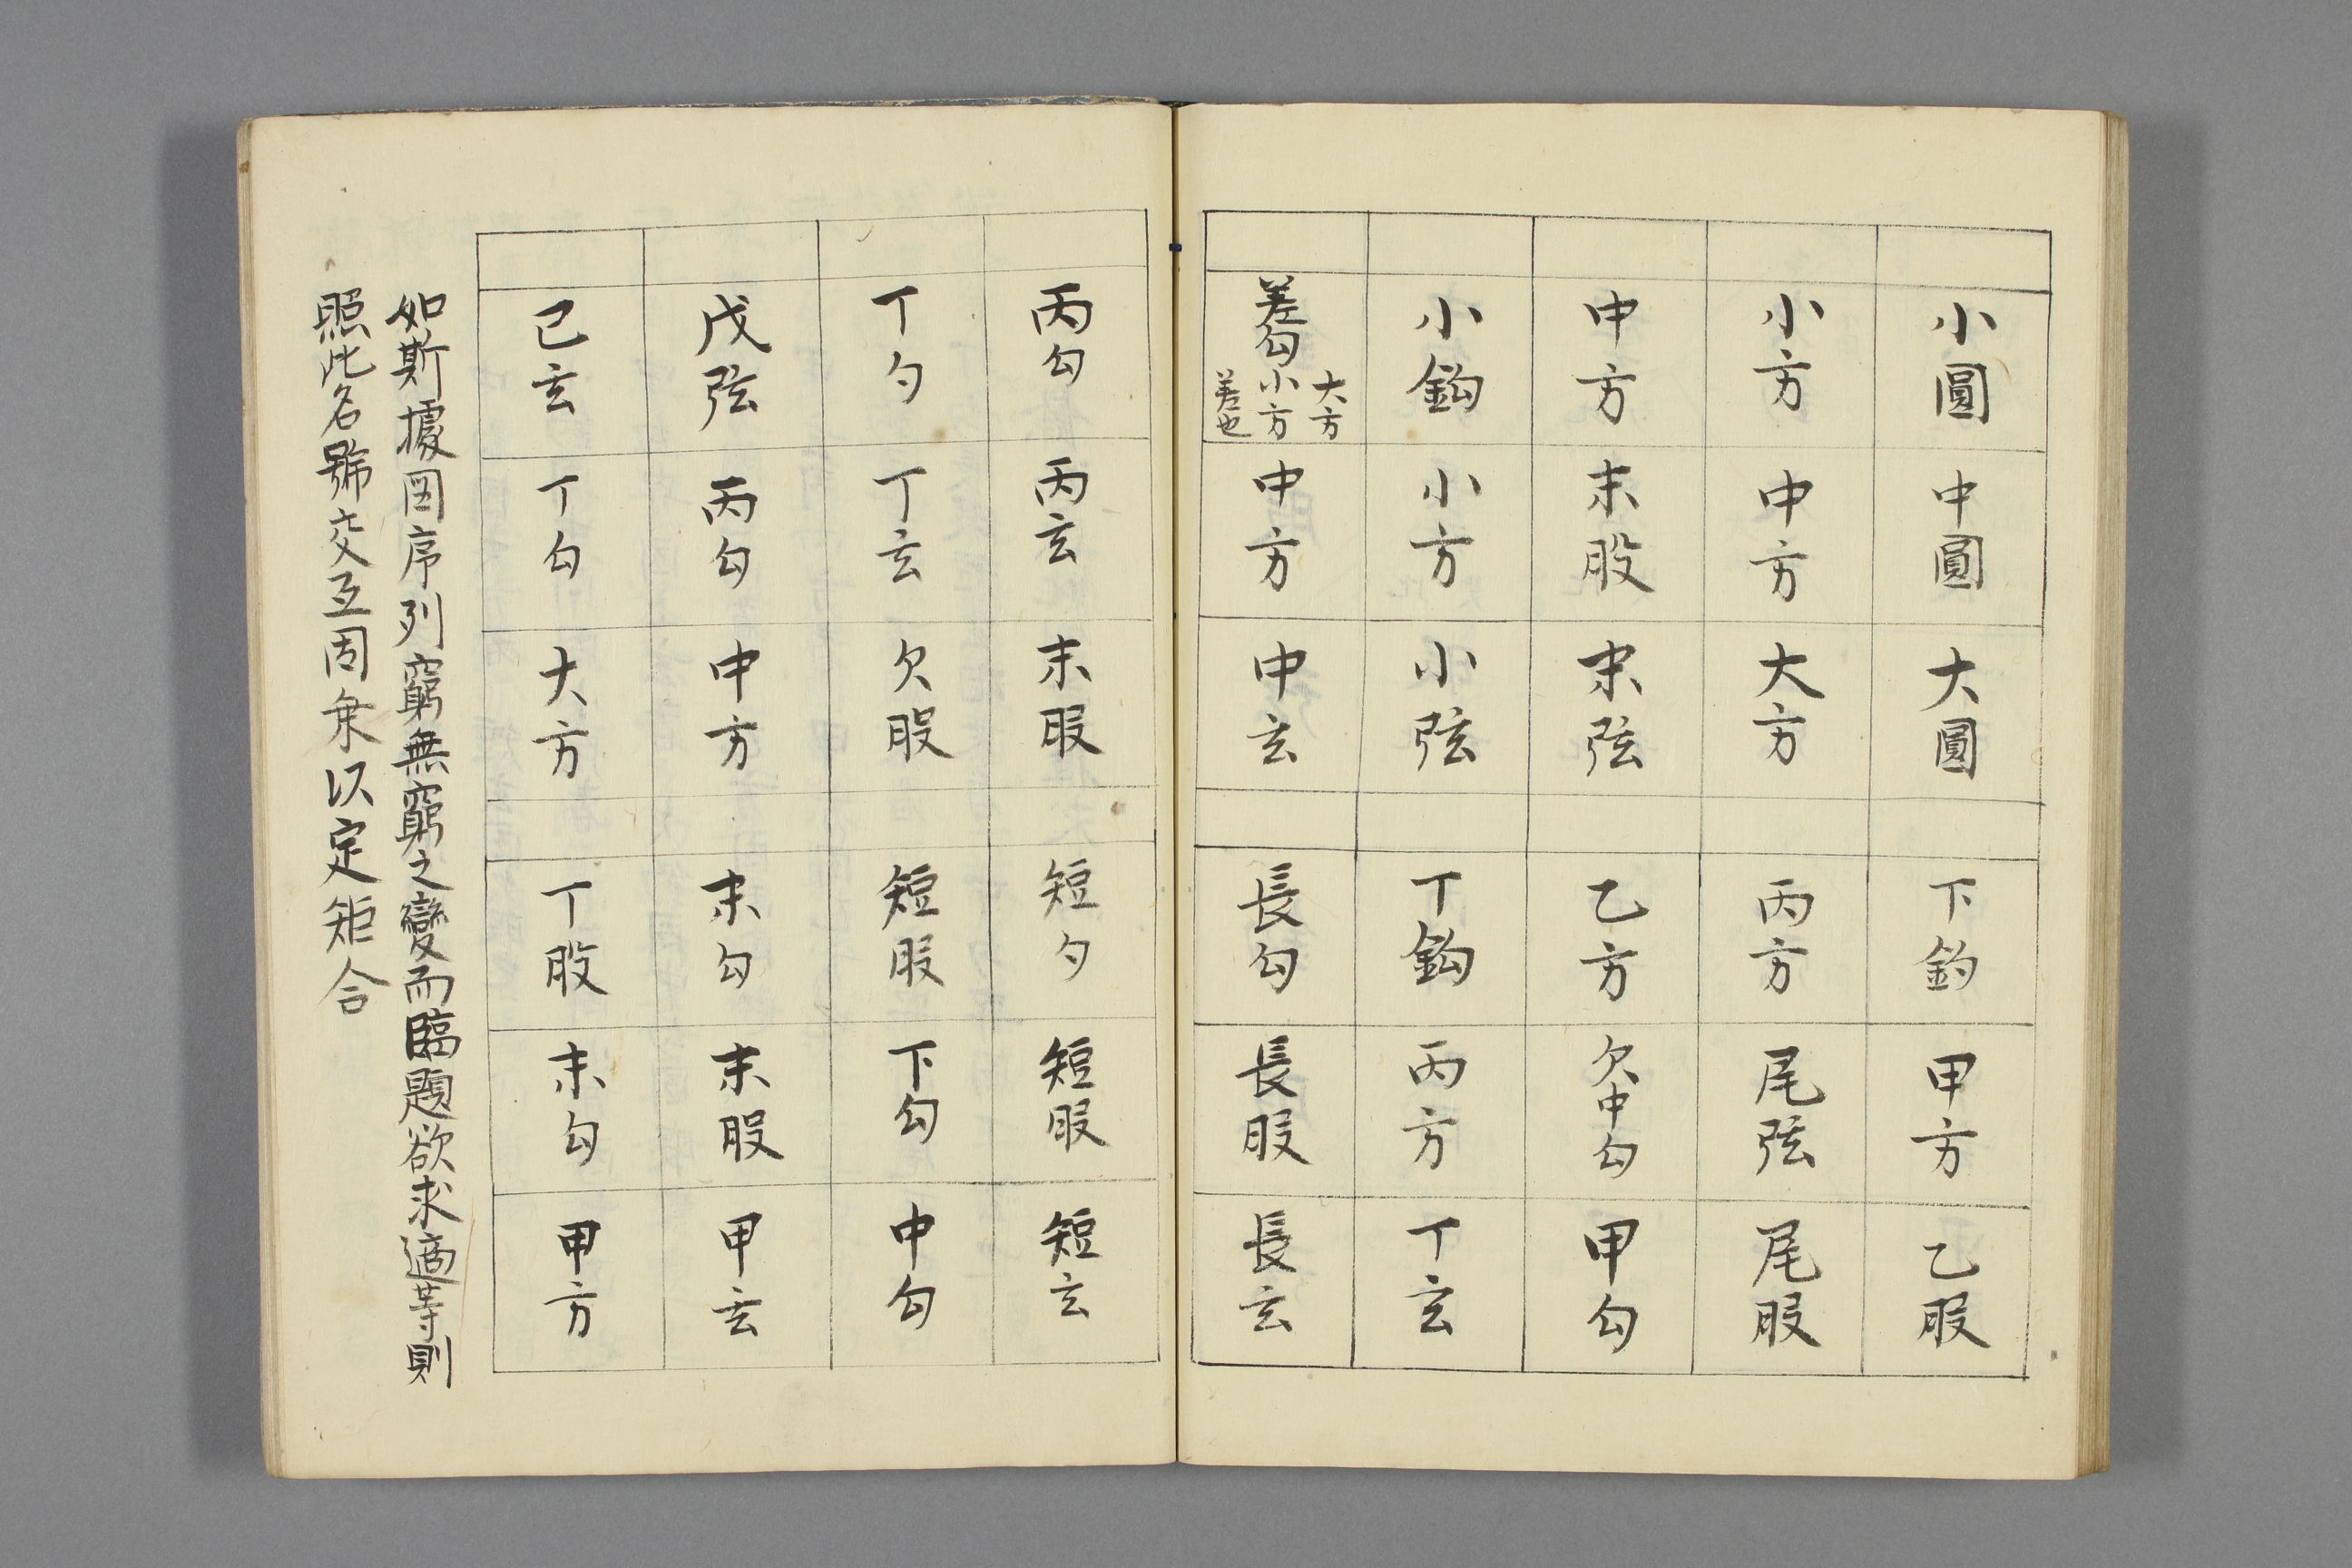 小圓 中圓 大圓 下鈎 甲方 乙股
小方 中方 大方 丙方 尾弦 尾股
中方 末股 末弦 乙方 欠中勾 甲勾
小鈎 小方 小弦 丁鈎 丙方 丁玄
差勾 大方
小方
差也 中方 中玄 長勾 長股 長玄
丙勾 丙玄 末股 短勺 短股 短玄
丁勺 丁玄 欠股 短股 下勾 中勾
戊弦 丙勾 中方 末勾 末股 甲玄
己玄 丁勾 大方 丁股 末勾 甲方
如斯據図序列窮無窮之變而臨題欲求適等則
照此名號交互固乗以定矩合